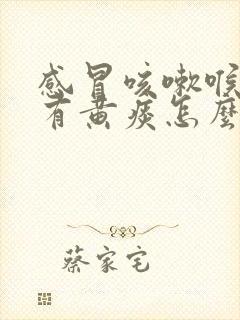 感冒咳嗽喉
有黄痰怎麽
蔡家宅